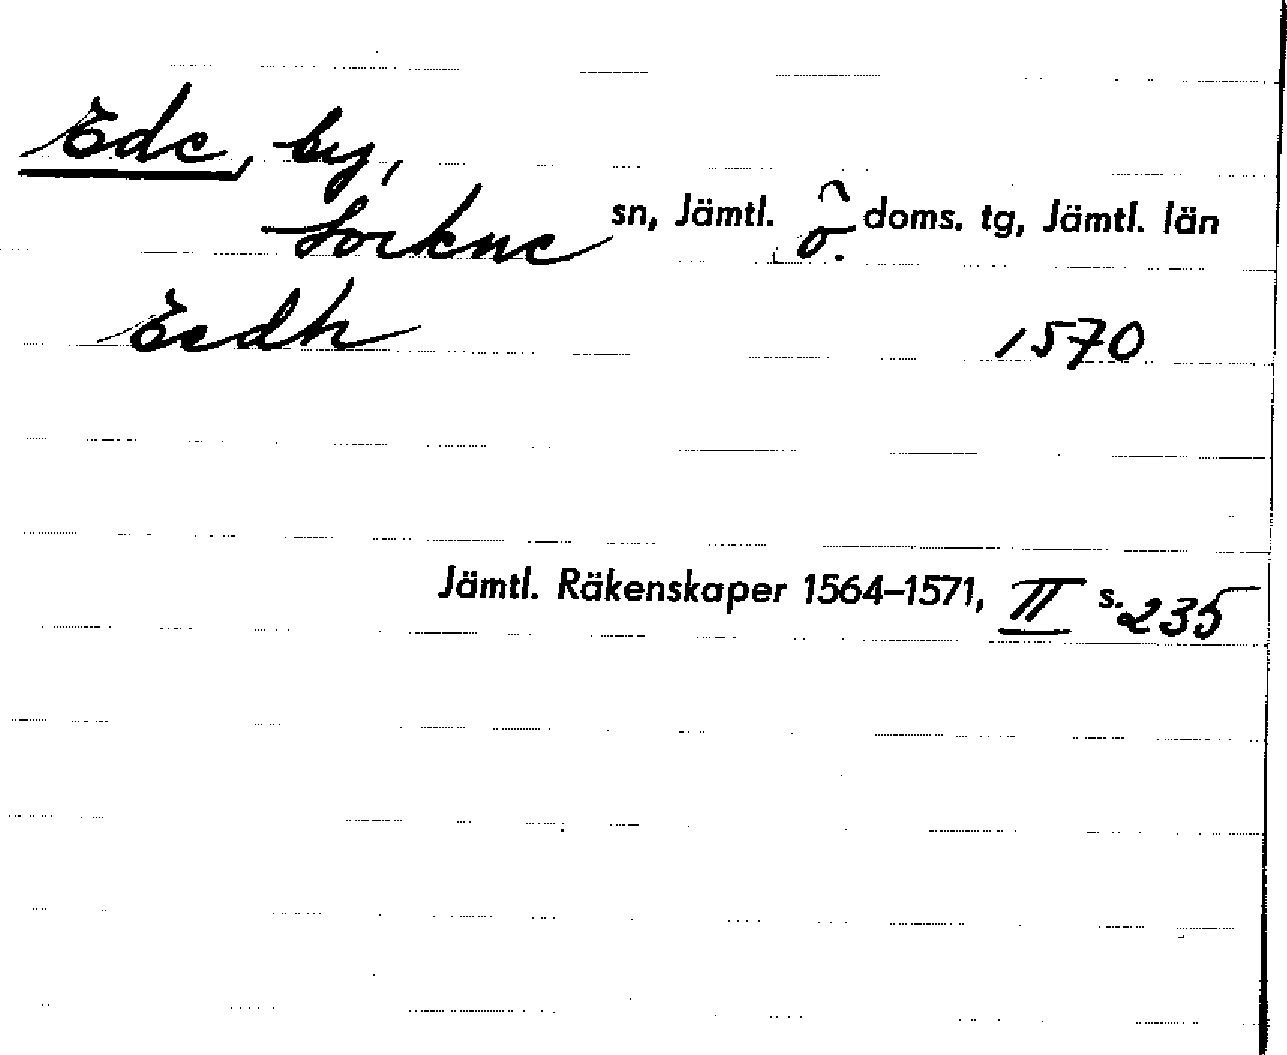 Ede, by,
Lockne sn, Jämtl. ö. doms. tg, Jämtl. län
Eedh 1570
Jämtl. Räkenskaper 1564–1571, II s. 235